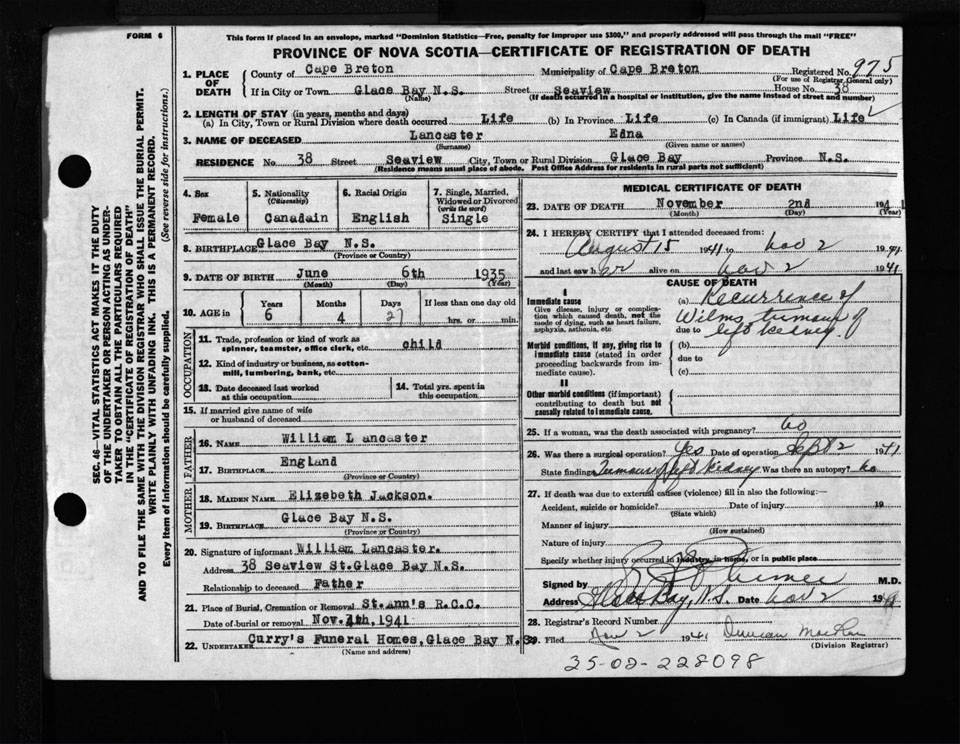 FORM 6
This form if placed in an envelope, marked "Dominion Statistics—Free, penalty for improper use $300," and properly addressed will pass through the mail "FREE"
PROVINCE OF NOVA SCOTIA—CERTIFICATE OF REGISTRATION OF DEATH
1. PLACE OF DEATH County of Cape Breton Municipality of Cape Breton Registered No. 975
(For use of Registrar General only)
If in City or Town Glace Bay N.S. Street Seaview House No. 38
(Name) (If death occurred in a hospital or institution, give the name instead of street and number)
2. LENGTH OF STAY (in years, months and days)
(a) In City, Town or Rural Division where death occurred Life (b) In Province Life (c) In Canada (if immigrant) Life
3. NAME OF DECEASED Lancaster Edna
(Surname) (Given name or names)
RESIDENCE No. 38 Street Seaview City, Town or Rural Division Glace Bay Province N.S.
(Residence means usual place of abode. Post Office Address for residents in rural parts not sufficient)
4. Sex 5. Nationality (Citizenship) 6. Racial Origin 7. Single, Married, Widowed or Divorced (write the word)
Female Canadain English Single
8. BIRTHPLACE Glace Bay N.S.
(Province or Country)
9. DATE OF BIRTH June 6th 1935
(Month) (Day) (Year)
10. AGE in Years Months Days If less than one day old
6 4 27 hrs. or min.
OCCUPATION
11. Trade, profession or kind of work as spinner, teamster, office clerk, etc. child
12. Kind of industry or business, as cotton-mill, lumbering, bank, etc.
13. Date deceased last worked at this occupation 14. Total yrs. spent in this occupation
15. If married give name of wife or husband of deceased
FATHER
16. NAME William L ancaster
17. BIRTHPLACE England
(Province or Country)
MOTHER
18. MAIDEN NAME Elizebeth Jackson.
19. BIRTHPLACE Glace Bay N.S.
(Province or Country)
20. Signature of informant William Lancaster.
Address 38 Seaview St.Glace Bay N.S.
Relationship to deceased Father
21. Place of Burial, Cremation or Removal St.Ann's R.C.C.
Date of burial or removal Nov.4th,1941
22. UNDERTAKER Curry's Funeral Homes,Glace Bay N.S.
(Name and address)
MEDICAL CERTIFICATE OF DEATH
23. DATE OF DEATH November 2nd 1941
(Month) (Day) (Year)
24. I HEREBY CERTIFY that I attended deceased from:
August 15 1941 to Nov 2 1941
and last saw her alive on Nov 2 1941
CAUSE OF DEATH
I
Immediate cause
Give disease, injury or complication which caused death, not the mode of dying, such as heart failure, asphyxia, asthenia, etc.
(a) Recurrence of
Wilms tumour of
due to left kidney.
Morbid conditions, if any, giving rise to immediate cause (stated in order proceeding backwards from immediate cause).
(b)
due to
(c)
II
Other morbid conditions (if important) contributing to death but not causally related to immediate cause.
25. If a woman, was the death associated with pregnancy? No
26. Was there a surgical operation? Yes Date of operation Sept 2 1941
State findings Tumour of left kidney Was there an autopsy? No
27. If death was due to external causes (violence) fill in also the following:—
Accident, suicide or homicide? Date of injury 19
(State which)
Manner of injury
(How sustained)
Nature of injury
Specify whether injury occurred in industry, in home, or in public place
Signed by M.D.
Address Glace Bay, N.S. Date Nov 2 1941
28. Registrar's Record Number
29. Filed Nov 2 1941 Duncan
(Division Registrar)
35-02-228098
SEC. 46—VITAL STATISTICS ACT MAKES IT THE DUTY
OF THE UNDERTAKER OR PERSON ACTING AS UNDER-
TAKER TO OBTAIN ALL THE PARTICULARS REQUIRED
IN THE "CERTIFICATE OF REGISTRATION OF DEATH"
AND TO FILE THE SAME WITH THE DIVISION REGISTRAR WHO SHALL ISSUE THE BURIAL PERMIT.
WRITE PLAINLY WITH UNFADING INK. THIS IS A PERMANENT RECORD.
Every item of information should be carefully supplied. (See reverse side for instructions.)